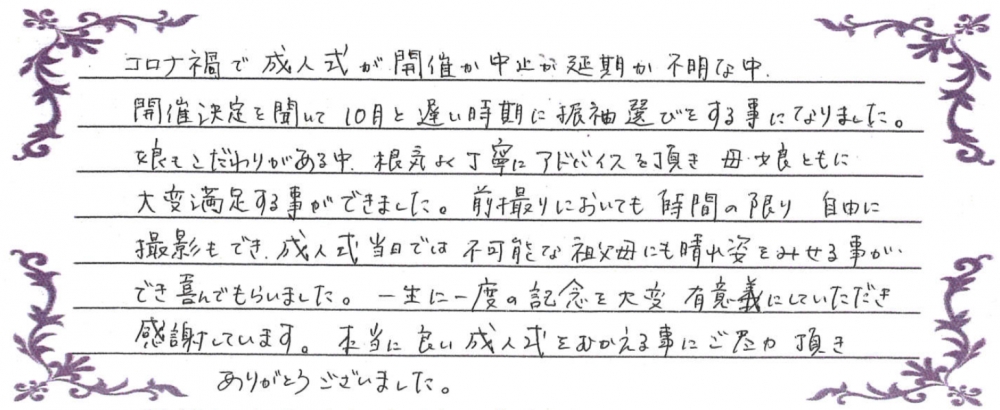 コロナ禍で成人式が開催か中止か延期か不明な中、
開催決定を聞いて10月と遅い時期に振袖選びをする事になりました。
娘もこだわりがある中、根気よく丁寧にアドバイスを頂き母・娘ともに
大変満足する事ができました。前撮りにおいても時間の限り自由に
撮影もでき、成人式当日では不可能な祖父母にも晴れ姿をみせる事が
でき喜んでもらいました。一生に一度の記念を大変有意義にしていただき
感謝しています。本当に良い成人式をむかえる事にご尽力頂き
ありがとうございました。